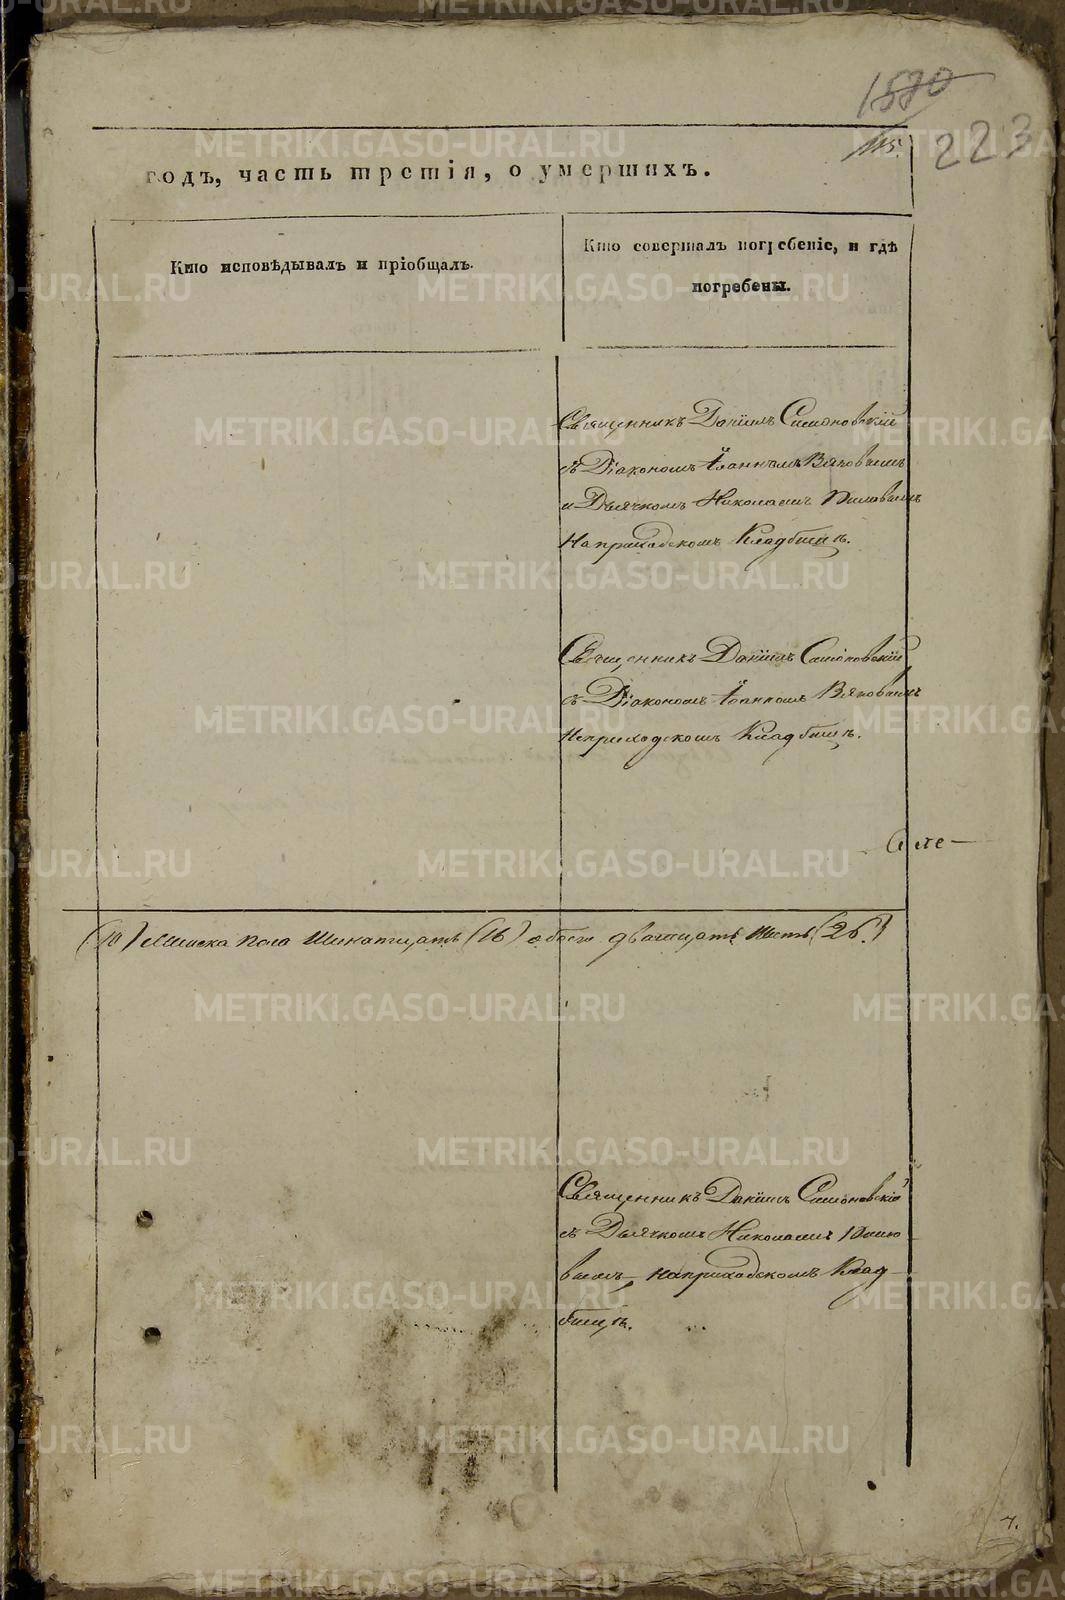 1580
115.
223
годъ, часть третія, о умершихъ.
Кто исповѣдывалъ и пріобщалъ.
Кто совершалъ погребеніе, и гдѣ
погребены.
Священникъ Даніилъ Симоновскій
съ Діакономъ Іоанномъ
и Дьячкомъ Николаемъ
На приходскомъ Кладбищѣ.
Священникъ Даніилъ Симоновскій
съ Діакономъ Іоанномъ
На приходскомъ Кладбищѣ.
(10) Женска пола Шестнатцать (16) обоего дватцать шесть (26.)
Священникъ Даніилъ Симоновскій
съ Дьячкомъ Николаемъ
вымъ на приходскомъ Клад-
бищѣ.
METRIKI.GASO-URAL.RU